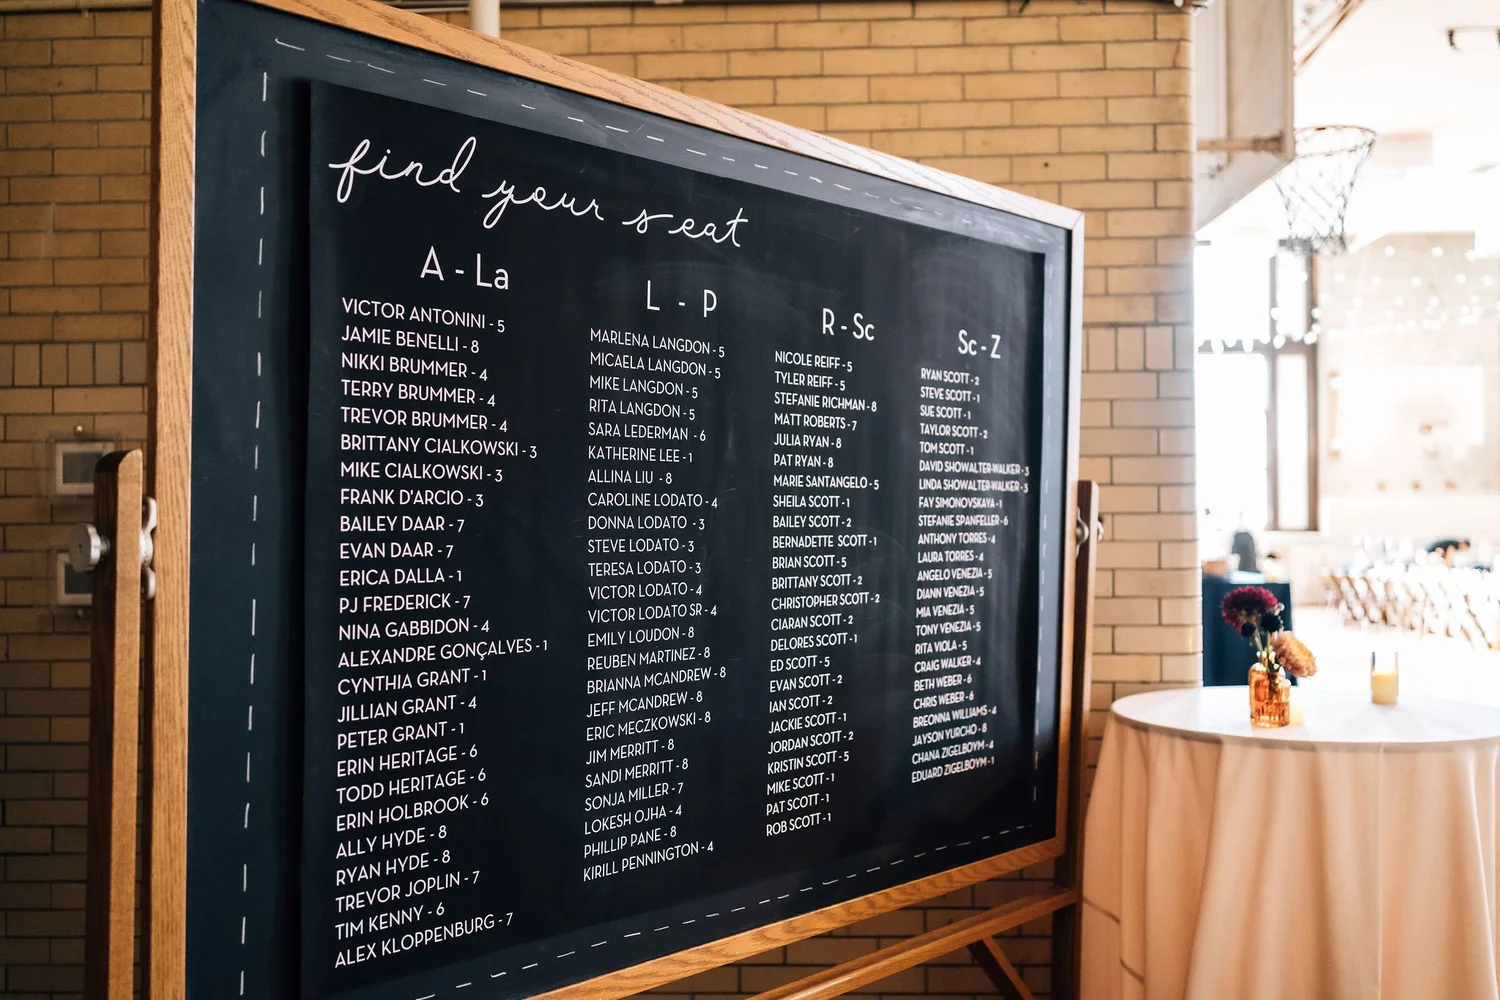 find your seat
A - La
VICTOR ANTONINI - 5
JAMIE BENELLI - 8
NIKKI BRUMMER - 4
TERRY BRUMMER - 4
TREVOR BRUMMER - 4
BRITTANY CIALKOWSKI - 3
MIKE CIALKOWSKI - 3
FRANK D'ARCIO - 3
BAILEY DAAR - 7
EVAN DAAR - 7
ERICA DALLA - 1
PJ FREDERICK - 7
NINA GABBIDON - 4
ALEXANDRE GONÇALVES - 1
CYNTHIA GRANT - 1
JILLIAN GRANT - 4
PETER GRANT - 1
ERIN HERITAGE - 6
TODD HERITAGE - 6
ERIN HOLBROOK - 6
ALLY HYDE - 8
RYAN HYDE - 8
TREVOR JOPLIN - 7
TIM KENNY - 6
ALEX KLOPPENBURG - 7
L - P
MARLENA LANGDON - 5
MICAELA LANGDON - 5
MIKE LANGDON - 5
RITA LANGDON - 5
SARA LEDERMAN - 6
KATHERINE LEE - 1
ALLINA LIU - 8
CAROLINE LODATO - 4
DONNA LODATO - 3
STEVE LODATO - 3
TERESA LODATO - 3
VICTOR LODATO - 4
VICTOR LODATO SR - 4
EMILY LOUDON - 8
REUBEN MARTINEZ - 8
BRIANNA MCANDREW - 8
JEFF MCANDREW - 8
ERIC MECZKOWSKI - 8
JIM MERRITT - 8
SANDI MERRITT - 8
SONJA MILLER - 7
LOKESH OJHA - 4
PHILLIP PANE - 8
KIRILL PENNINGTON - 4
R - Sc
NICOLE REIFF - 5
TYLER REIFF - 5
STEFANIE RICHMAN - 8
MATT ROBERTS - 7
JULIA RYAN - 8
PAT RYAN - 8
MARIE SANTANGELO - 5
SHEILA SCOTT - 1
BAILEY SCOTT - 2
BERNADETTE SCOTT - 1
BRIAN SCOTT - 5
BRITTANY SCOTT - 2
CHRISTOPHER SCOTT - 2
CIARAN SCOTT - 2
DELORES SCOTT - 1
ED SCOTT - 5
EVAN SCOTT - 2
IAN SCOTT - 2
JACKIE SCOTT - 1
JORDAN SCOTT - 2
KRISTIN SCOTT - 5
MIKE SCOTT - 1
PAT SCOTT - 1
ROB SCOTT - 1
Sc - Z
RYAN SCOTT - 2
STEVE SCOTT - 1
SUE SCOTT - 1
TAYLOR SCOTT - 2
TOM SCOTT - 1
DAVID SHOWALTER-WALKER - 3
LINDA SHOWALTER-WALKER - 3
FAY SIMONOVSKAYA - 1
STEFANIE SPANFELLER - 6
ANTHONY TORRES - 4
LAURA TORRES - 4
ANGELO VENEZIA - 5
DIANN VENEZIA - 5
MIA VENEZIA - 5
TONY VENEZIA - 5
RITA VIOLA - 5
CRAIG WALKER - 4
BETH WEBER - 6
CHRIS WEBER - 6
BREONNA WILLIAMS - 4
JAYSON YURCHO - 8
CHANA ZIGELBOYM - 4
EDUARD ZIGELBOYM - 1